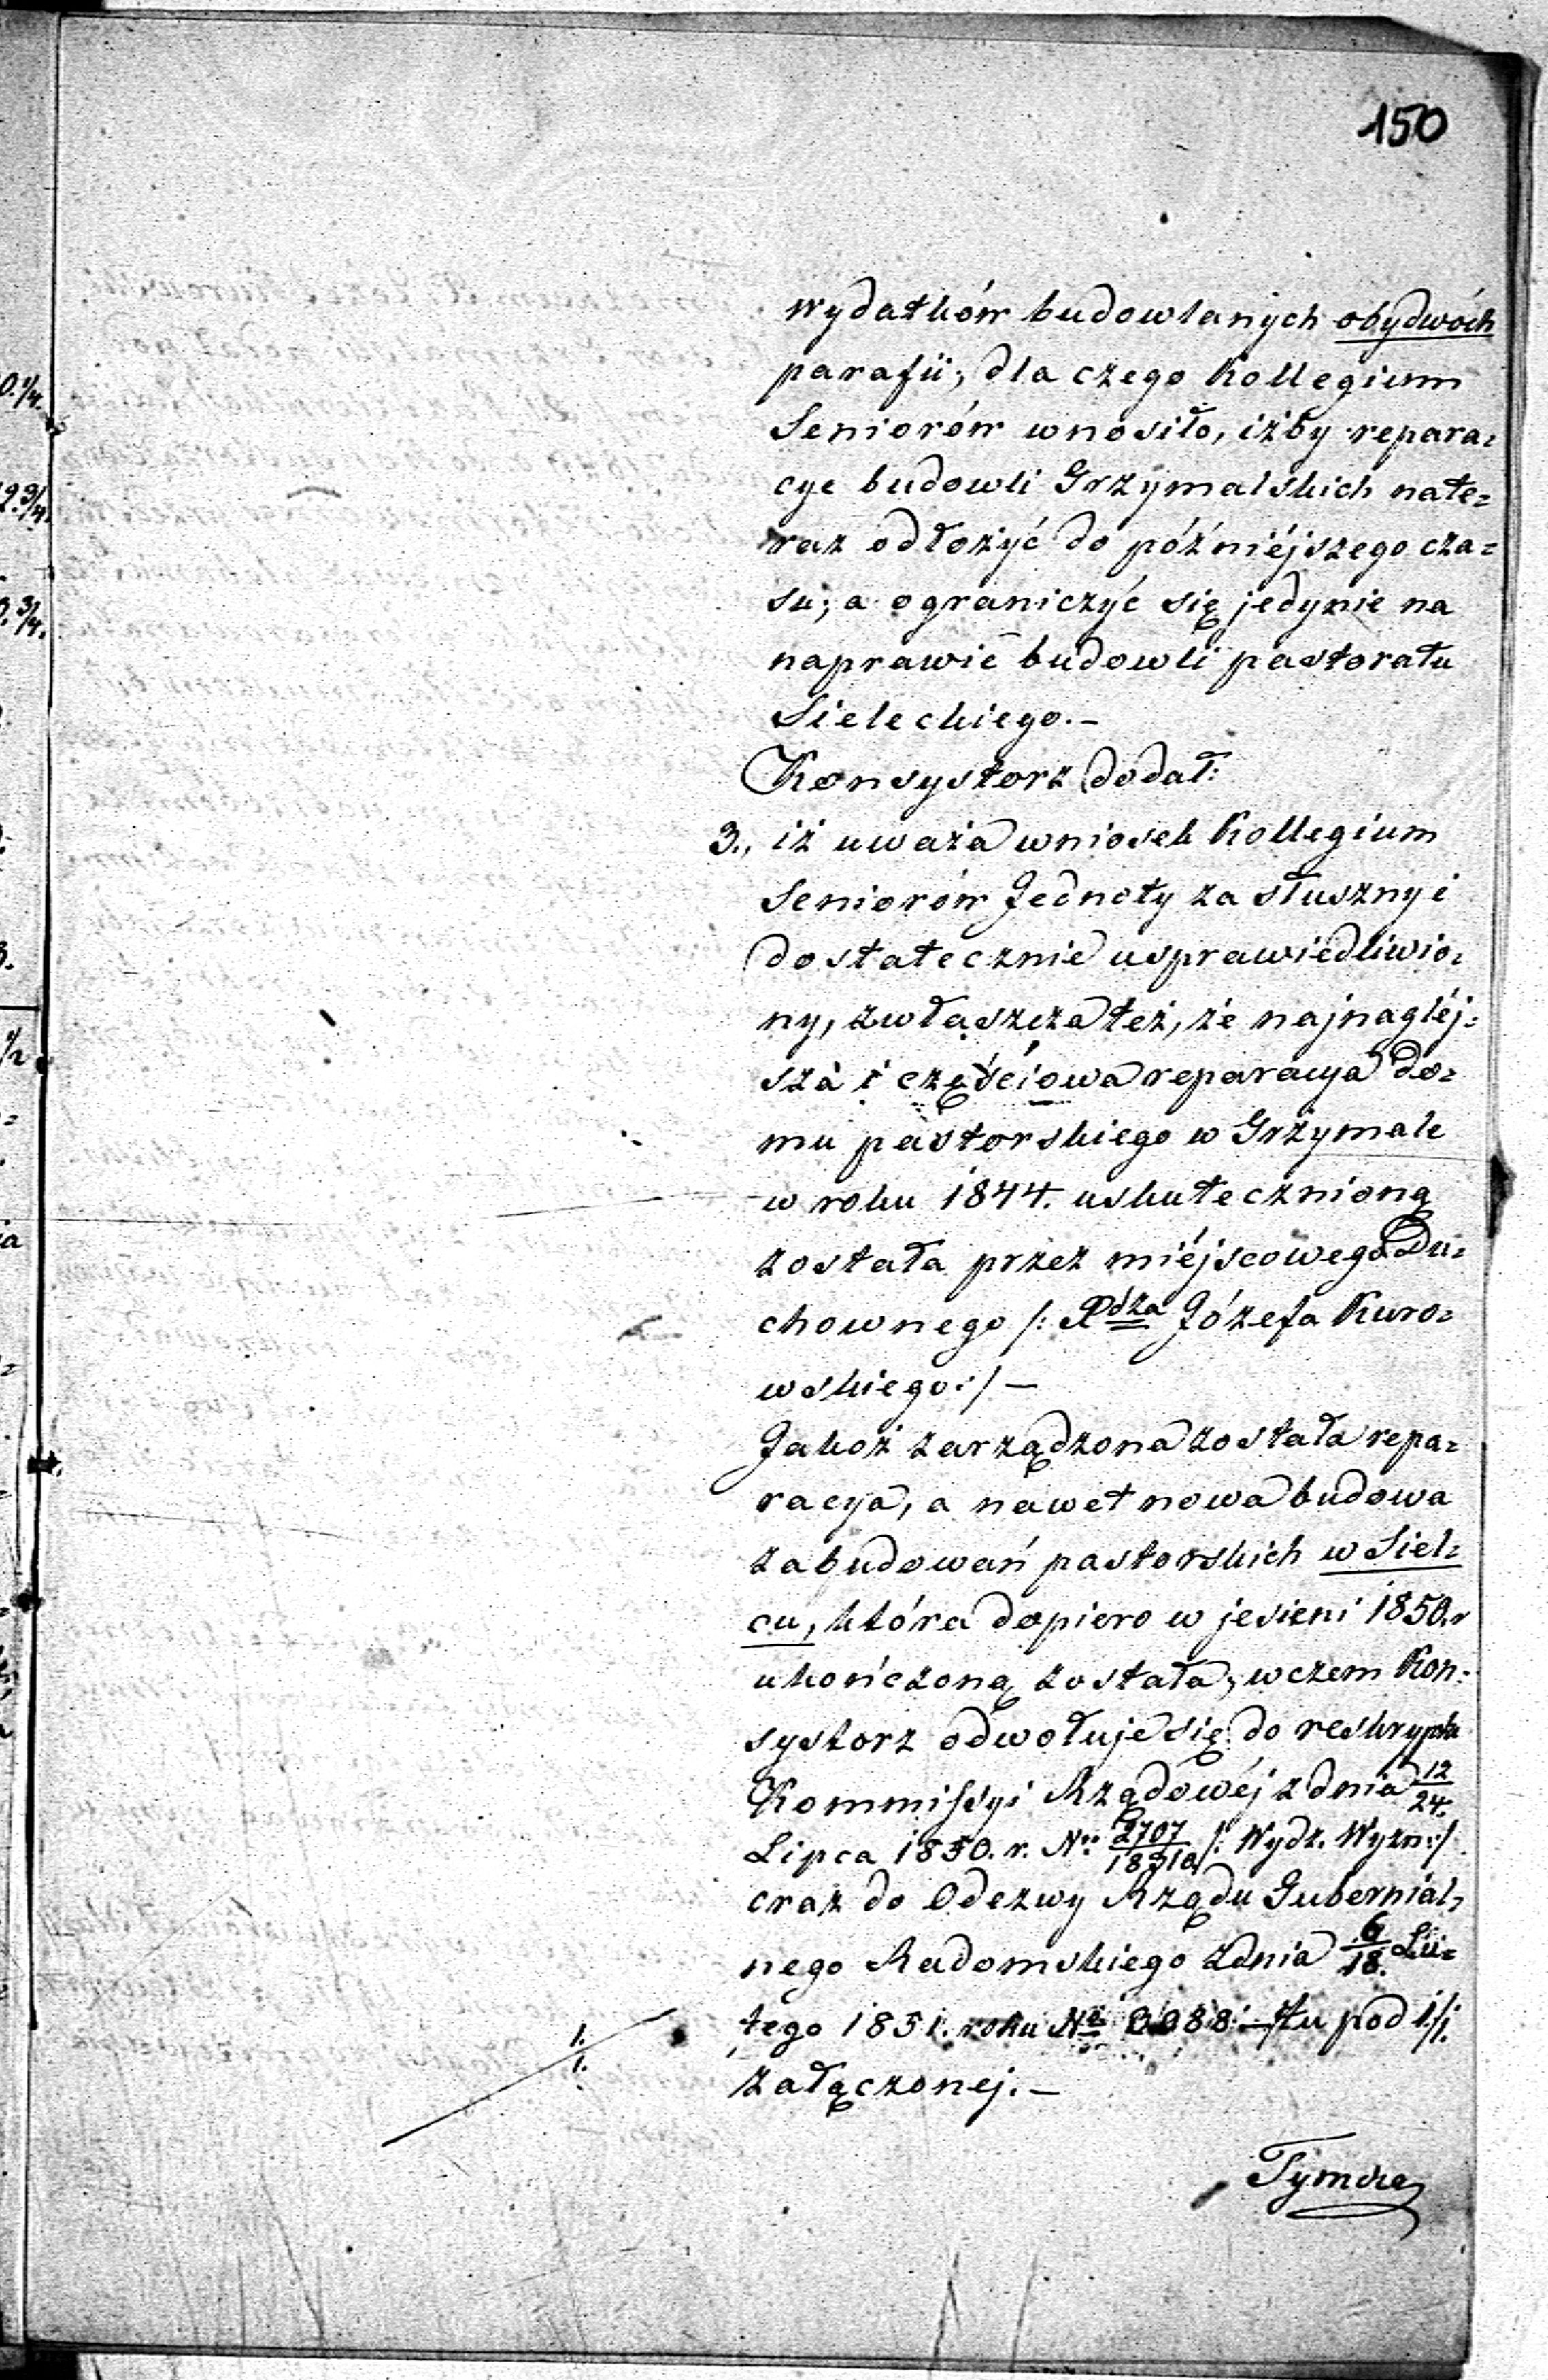 150
wydatków budowlanych obydwóch
parafii; dla czego Kollegium
Seniorów wnosiło, iżby repara=
cye budowli Grzymalskich nate=
raz odłożyć do późniéjszego cza=
su; a ograniczyć się jedynie na
naprawie budowli pastoratu
Sieleckiego.-
Konsystorz dodał:
3., iż uważa wniosek Kollegium
Seniorów Jednoty za słuszny i
dostatecznie usprawiedliwio=
ny, zwłaszcza też, że najnagléj=
sza i częściowa reparacya do=
mu pastorskiego w Grzymale
w roku 1844. uskutecznioną
została przez miéjscowego Du=
chownego /: Xdza Józefa Kuro=
wskiego:/ —
Jakoż zarządzona została repa=
racya, a nawet nowa budowa
zabudowań pastorskich w Siel=
cu, która dopiero w jesieni 1850. r
ukończoną została; w czem Kon=
systorz odwołuje się do reskryptu
Kommissyi Rządowéj z dnia 12/24.
Lipca 1850. r. No. 2707/18310 /: Wydz. Wyzn:/
oraz do Odezwy Rządu Gubernial=
nego Radomskiego z dnia 6/18. Lu=
tego 1851. roku No 3088 — tu pod 1./1.
załączonej.—
1./1.